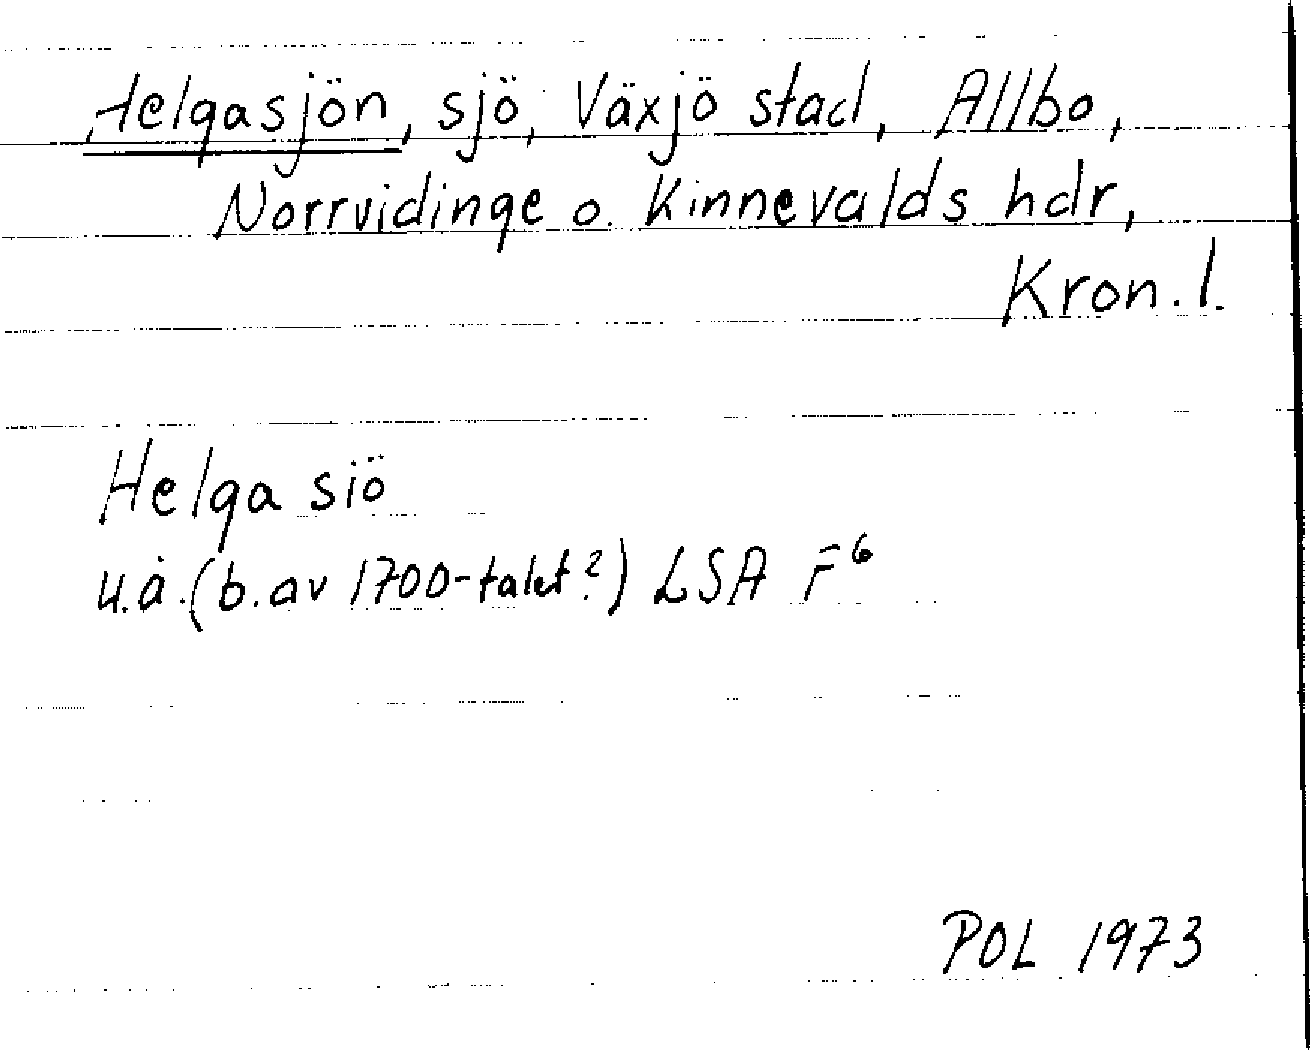 Helgasjön, sjö, Växjö stad, Allbo,
Norrvidinge o. Kinnevalds hdr,
Kron. l.
Helga siö
u.å. (b. av 1700-talet?) LSA F⁶
POL 1973